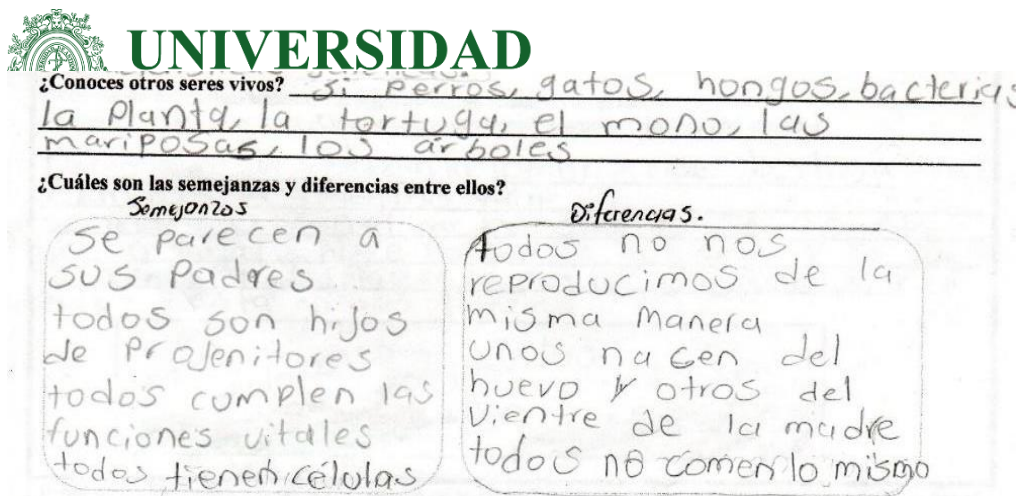 UNIVERSIDAD
¿Conoces otros seres vivos? si perros, gatos, hongos, bacterias
la planta, la tortuga, el mono, las
mariposas, los árboles
¿Cuáles son las semejanzas y diferencias entre ellos?
Semejanzas
se parecen a
sus padres
todos son hijos
de projenitores
todos cumplen las
funciones vitales
todos tienen células
Diferencias.
todos no nos
reproducimos de la
misma manera
unos nacen del
huevo y otros del
vientre de la madre
todos no comen lo mismo